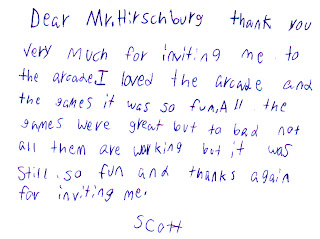 Dear Mr. Hirschburg thank you
very much for inviting me to
the arcade. I loved the arcade and
the games it was so fun. All the
games were great but to bad not
all them are working but it was
still so fun and thanks again
for inviting me.
Scott